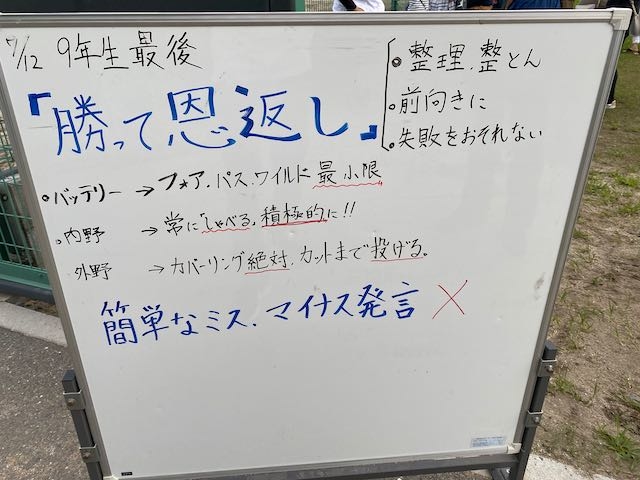 7/12 9年生最後
『勝って恩返し』
・整理、整とん
・前向きに
・失敗をおそれない
・バッテリー → フォア、パス、ワイルド 最小限
・内野 → 常に「しゃべる」積極的に!!
外野 → カバーリング絶対、カットまで投げる。
簡単なミス、マイナス発言 ×